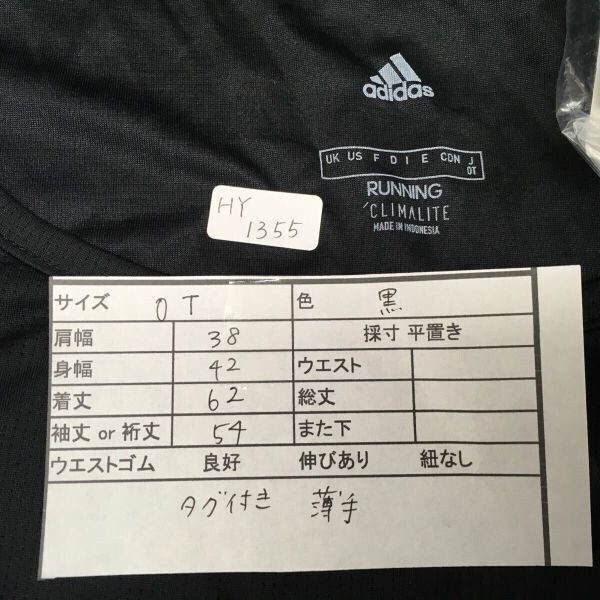 adidas
UK US F D I E CDN J
OT
RUNNING
CLIMALITE
MADE IN INDONESIA
HY
1355
サイズ OT 色 黒
肩幅 38 採寸 平置き
身幅 42 ウエスト
着丈 62 総丈
袖丈 or 裄丈 54 また下
ウエストゴム 良好 伸びあり 紐なし
タグ付き 薄手